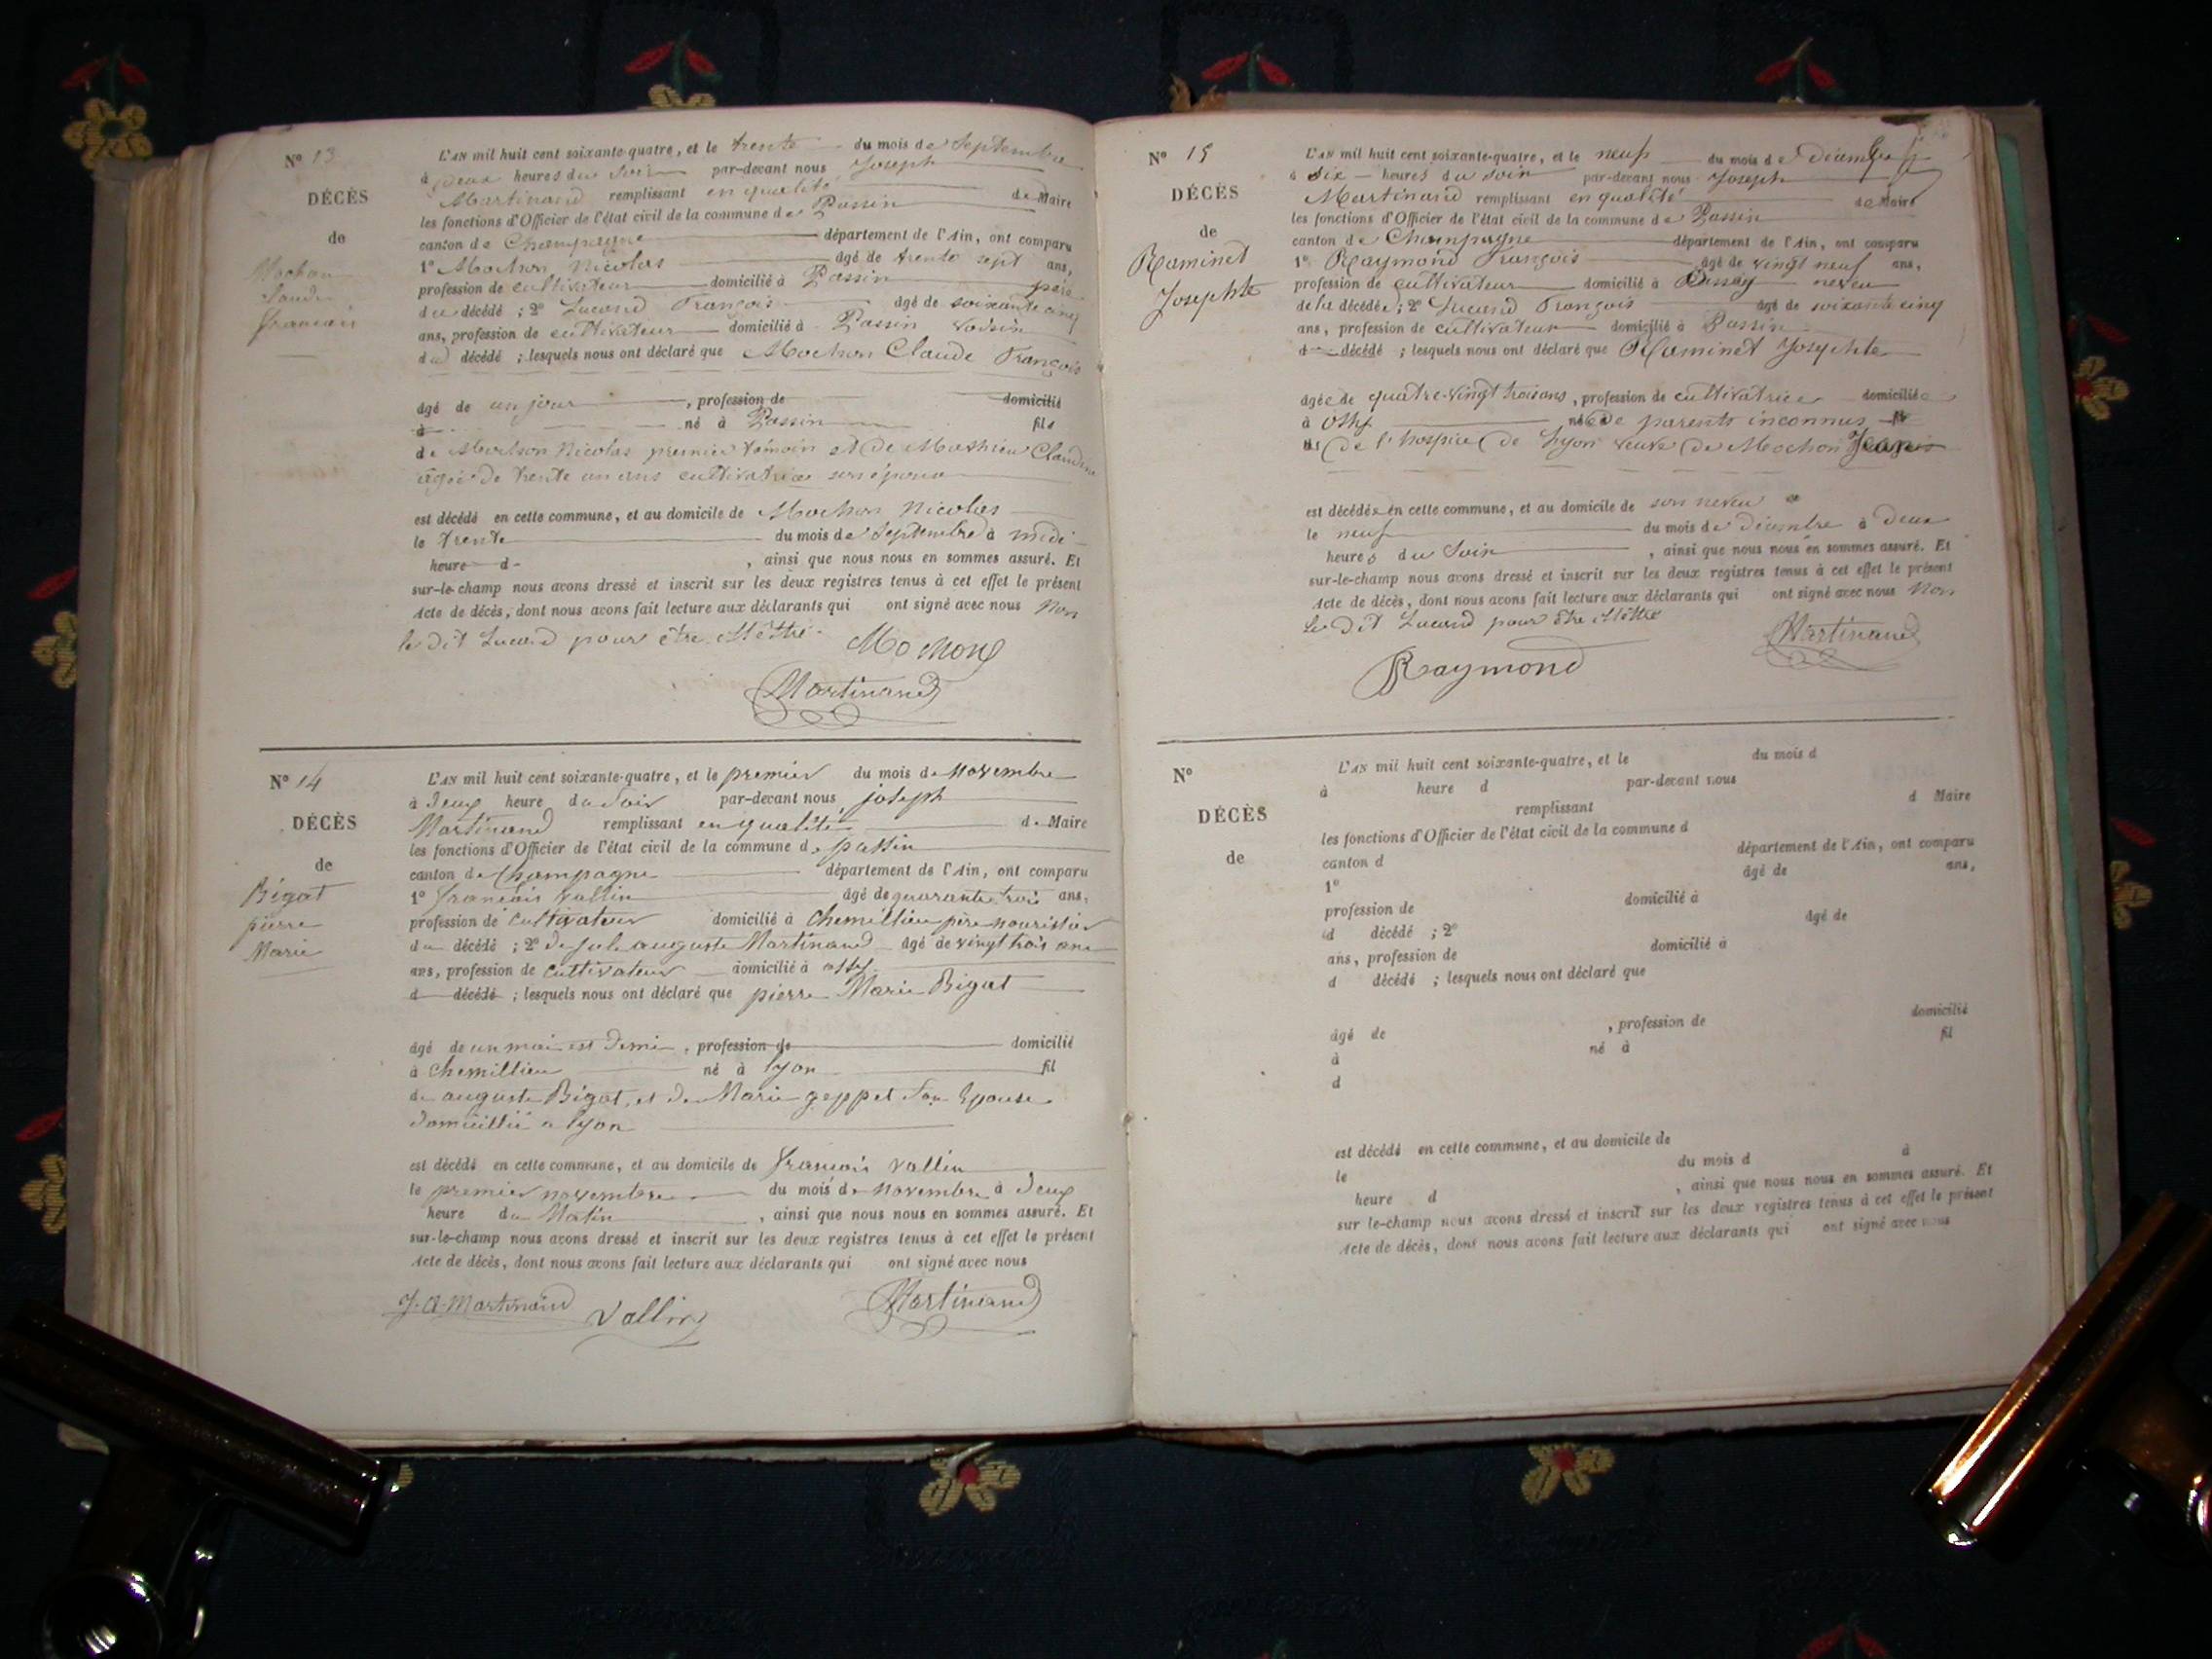 N° 13
DÉCÈS
de
Mochon
Claude
François
L'AN mil huit cent soixante-quatre, et le trente du mois de Septembre
à deux heures du Soir par-devant nous Joseph
Martinand remplissant en qualité de Maire
les fonctions d'Officier de l'état civil de la commune de Passin
canton de Champagne département de l'Ain, ont comparu
1° Mochon Nicolas âgé de trente sept ans,
profession de cultivateur domicilié à Passin père
du décédé ; 2° Lucand François âgé de soixante cinq
ans, profession de cultivateur domicilié à Passin voisin
du décédé ; lesquels nous ont déclaré que Mochon Claude François
âgé de un jour , profession de domicilié
à né à Passin fils
de Mochon Nicolas premier témoin et de Mathieu Claudine
âgée de trente un ans cultivatrice son épouse
est décédé en cette commune, et au domicile de Mochon Nicolas
le trente du mois de Septembre à midi
heure d , ainsi que nous nous en sommes assuré. Et
sur-le-champ nous avons dressé et inscrit sur les deux registres tenus à cet effet le présent
Acte de décès, dont nous avons fait lecture aux déclarants qui ont signé avec nous Non
le dit Lucand pour être illêttré
Mochon
Martinand
N° 14
DÉCÈS
de
Bigat
pierre
Marie
L'AN mil huit cent soixante-quatre, et le premier du mois de Novembre
à deux heure du Soir par-devant nous joseph
Martinand remplissant en qualité de Maire
les fonctions d'Officier de l'état civil de la commune de passin
canton de Champagne département de l'Ain, ont comparu
1° françois vallin âgé de quarante trois ans,
profession de Cultivateur domicilié à Chemillieu père nourissier
du décédé ; 2° de jule auguste Martinand âgé de vingt trois ans
ans, profession de Cultivateur domicilié à
d décédé ; lesquels nous ont déclaré que pierre Marie Bigat
âgé de un moi est demi , profession de domicilié
à Chemillieu né à lyon fil
de auguste Bigat, et de Marie geppet Son Epouse
domicillié a lyon
est décédé en cette commune, et au domicile de françois vallin
le premier novembre du mois de Novembre à deux
heure du Matin , ainsi que nous nous en sommes assuré. Et
sur-le-champ nous avons dressé et inscrit sur les deux registres tenus à cet effet le présent
Acte de décès, dont nous avons fait lecture aux déclarants qui ont signé avec nous
J. A. Martinand Vallin Martinand
N° 15
DÉCÈS
de
Raminet
Josephte
L'AN mil huit cent soixante-quatre, et le neuf du mois de Décembre
à six heures du soir par-devant nous Joseph
Martinand remplissant en qualité de Maire
les fonctions d'Officier de l'état civil de la commune de Passin
canton de Champagne département de l'Ain, ont comparu
1° Raymond François âgé de vingt neuf ans,
profession de cultivateur domicilié à neveu
de la décédée ; 2° Lucand François âgé de soixante cinq
ans, profession de cultivateur domicilié à Passin
d décédé ; lesquels nous ont déclaré que Raminet Josephte
âgée de quatre-vingt trois ans , profession de cultivatrice domiciliée
à née de parents inconnus fil
de l'hospice de Lyon veuve de Mochon
est décédée en cette commune, et au domicile de son neveu
le neuf du mois de décembre à deux
heures du Soir , ainsi que nous nous en sommes assuré. Et
sur-le-champ nous avons dressé et inscrit sur les deux registres tenus à cet effet le présent
Acte de décès, dont nous avons fait lecture aux déclarants qui ont signé avec nous Non
le dit Lucand pour être illêttré
Martinand
Raymond
N°
DÉCÈS
de
L'AN mil huit cent soixante-quatre, et le du mois d
à heure d par-devant nous
remplissant d Maire
les fonctions d'Officier de l'état civil de la commune d
canton d département de l'Ain, ont comparu
1° âgé de ans,
profession de domicilié à
d décédé ; 2° âgé de
ans, profession de domicilié à
d décédé ; lesquels nous ont déclaré que
âgé de , profession de domicilié
à né à fil
d
est décédé en cette commune, et au domicile de
le du mois d à
heure d , ainsi que nous nous en sommes assuré. Et
sur le-champ nous avons dressé et inscrit sur les deux registres tenus à cet effet le présent
Acte de décès, dont nous avons fait lecture aux déclarants qui ont signé avec nous